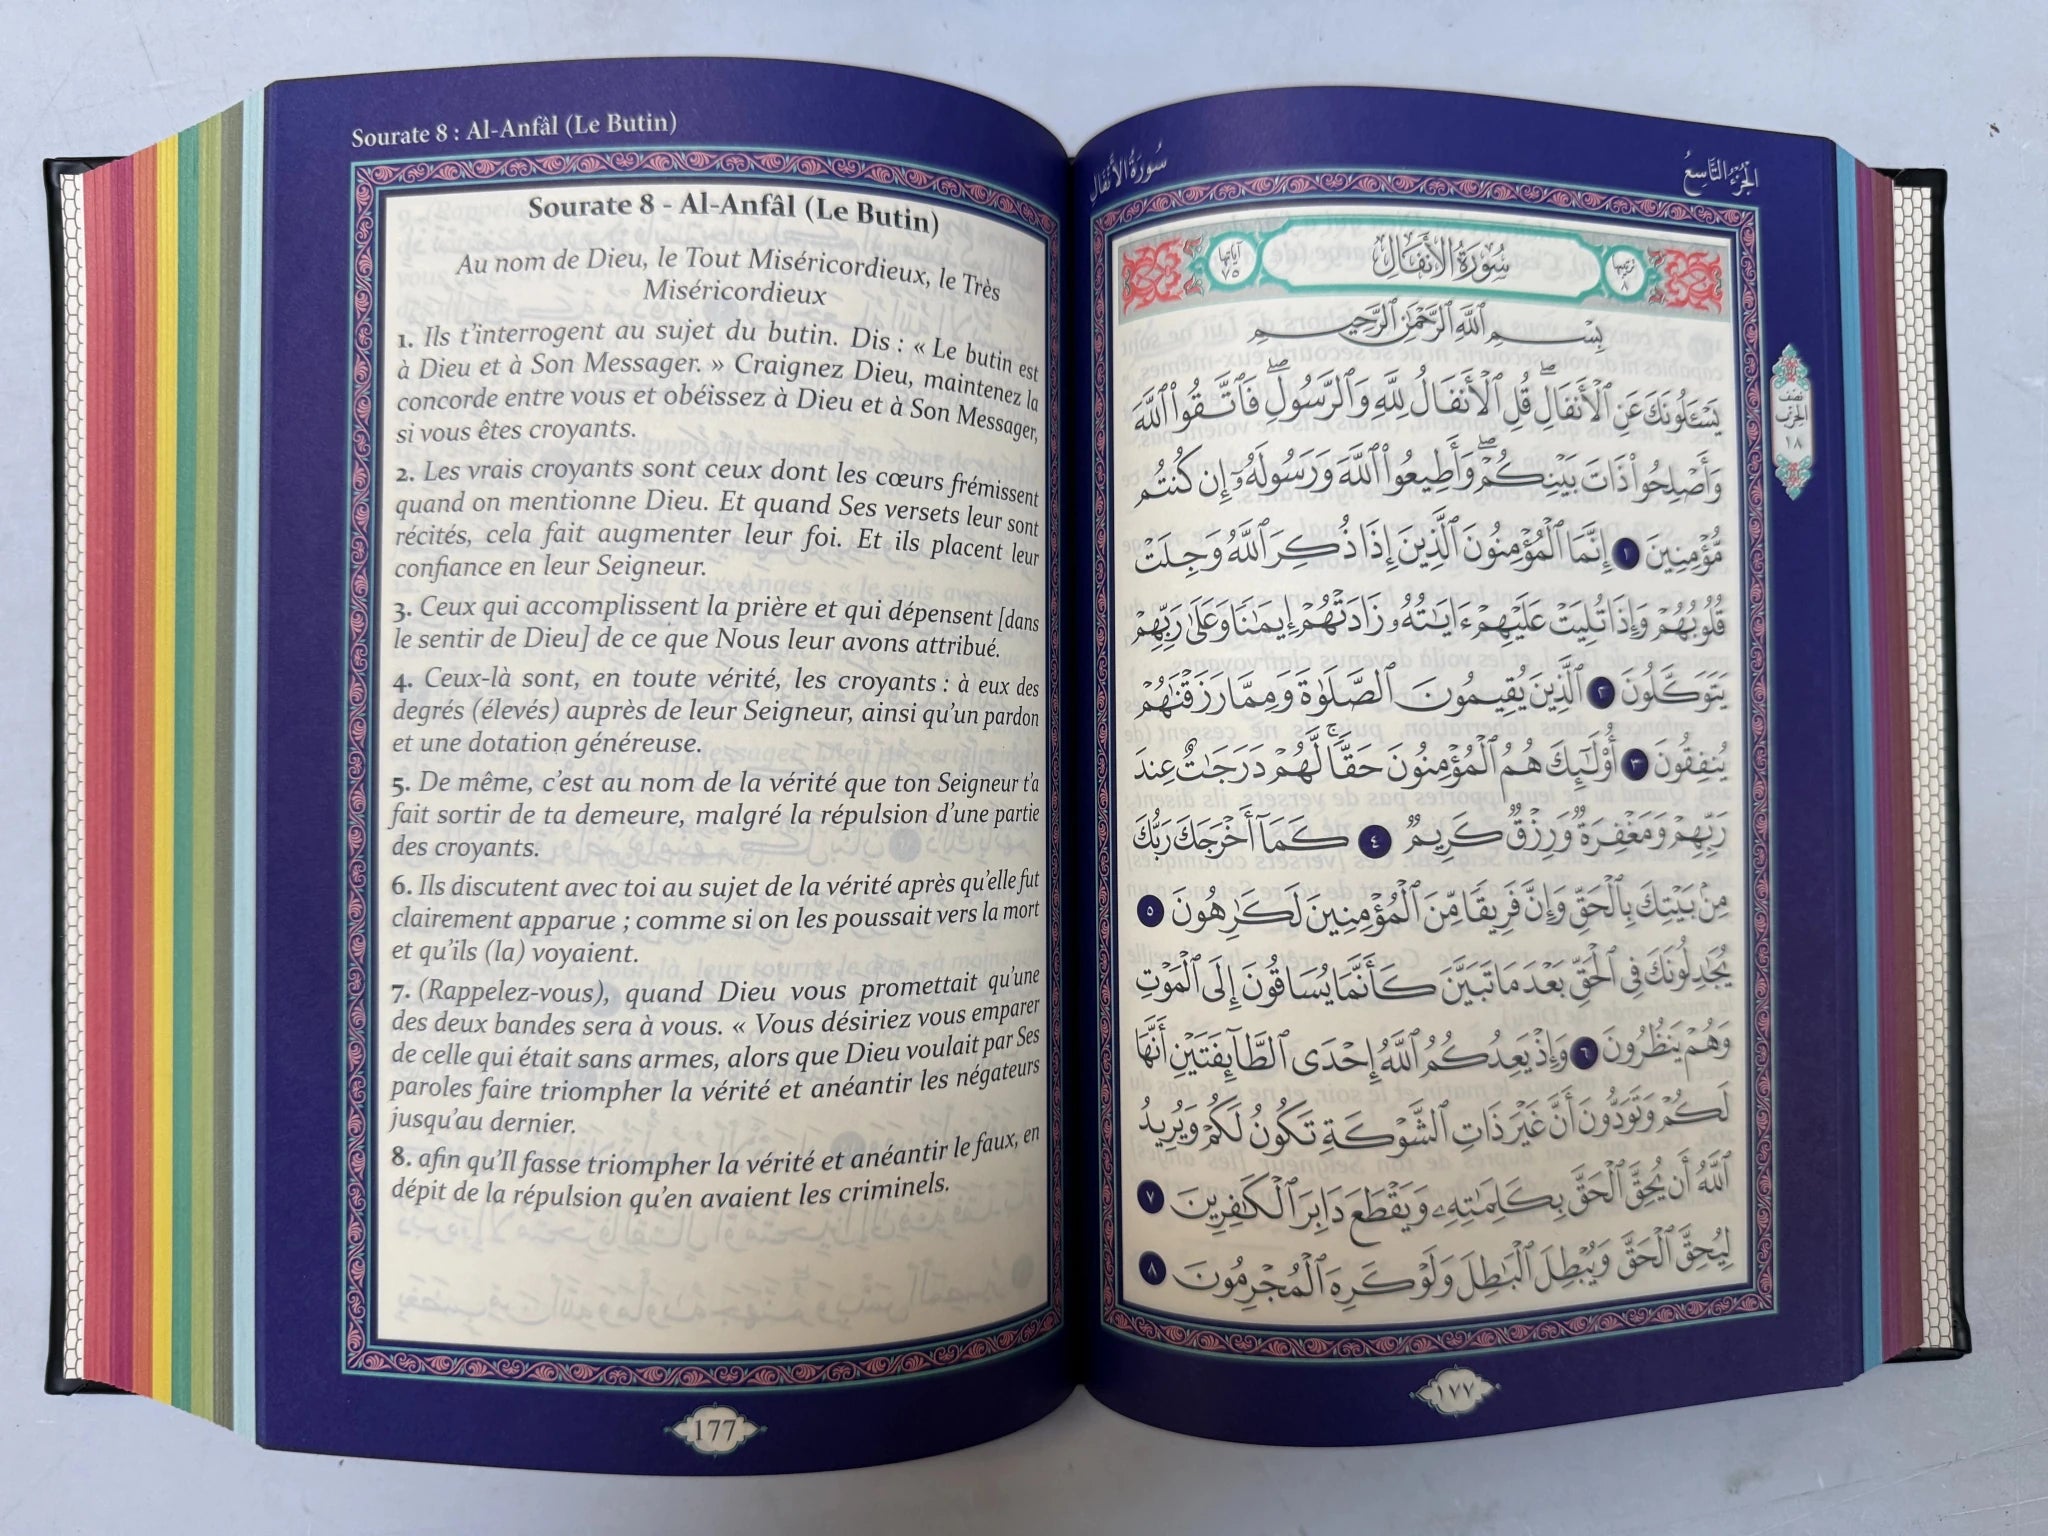 Sourate 8 : Al-Anfâl (Le Butin)
Sourate 8 - Al-Anfâl (Le Butin)
Au nom de Dieu, le Tout Miséricordieux, le Très
Miséricordieux
1. Ils t’interrogent au sujet du butin. Dis : « Le butin est
à Dieu et à Son Messager. » Craignez Dieu, maintenez la
concorde entre vous et obéissez à Dieu et à Son Messager,
si vous êtes croyants.
2. Les vrais croyants sont ceux dont les cœurs frémissent
quand on mentionne Dieu. Et quand Ses versets leur sont
récités, cela fait augmenter leur foi. Et ils placent leur
confiance en leur Seigneur.
3. Ceux qui accomplissent la prière et qui dépensent [dans
le sentir de Dieu] de ce que Nous leur avons attribué.
4. Ceux-là sont, en toute vérité, les croyants : à eux des
degrés (élevés) auprès de leur Seigneur, ainsi qu’un pardon
et une dotation généreuse.
5. De même, c’est au nom de la vérité que ton Seigneur t’a
fait sortir de ta demeure, malgré la répulsion d’une partie
des croyants.
6. Ils discutent avec toi au sujet de la vérité après qu’elle fut
clairement apparue ; comme si on les poussait vers la mort
et qu’ils (la) voyaient.
7. (Rappelez-vous), quand Dieu vous promettait qu’une
des deux bandes sera à vous. « Vous désiriez vous emparer
de celle qui était sans armes, alors que Dieu voulait par Ses
paroles faire triompher la vérité et anéantir les négateurs
jusqu’au dernier.
8. afin qu’Il fasse triompher la vérité et anéantir le faux, en
dépit de la répulsion qu’en avaient les criminels.
177
الجزء التاسع
سورة الأنفال
ترتيبها ٨
سُورَةُ الأَنفَالِ
آياتها ٧٥
بِسْمِ ٱللَّهِ ٱلرَّحْمَٰنِ ٱلرَّحِيمِ
يَسْـَٔلُونَكَ عَنِ ٱلْأَنفَالِۖ قُلِ ٱلْأَنفَالُ لِلَّهِ وَٱلرَّسُولِۖ فَٱتَّقُوا۟ ٱللَّهَ
وَأَصْلِحُوا۟ ذَاتَ بَيْنِكُمْۖ وَأَطِيعُوا۟ ٱللَّهَ وَرَسُولَهُۥٓ إِن كُنتُم
مُّؤْمِنِينَ ١ إِنَّمَا ٱلْمُؤْمِنُونَ ٱلَّذِينَ إِذَا ذُكِرَ ٱللَّهُ وَجِلَتْ
قُلُوبُهُمْ وَإِذَا تُلِيَتْ عَلَيْهِمْ ءَايَٰتُهُۥ زَادَتْهُمْ إِيمَٰنًا وَعَلَىٰ رَبِّهِمْ
يَتَوَكَّلُونَ ٢ ٱلَّذِينَ يُقِيمُونَ ٱلصَّلَوٰةَ وَمِمَّا رَزَقْنَٰهُمْ
يُنفِقُونَ ٣ أُو۟لَٰٓئِكَ هُمُ ٱلْمُؤْمِنُونَ حَقًّاۚ لَّهُمْ دَرَجَٰتٌ عِندَ
رَبِّهِمْ وَمَغْفِرَةٌ وَرِزْقٌ كَرِيمٌ ٤ كَمَآ أَخْرَجَكَ رَبُّكَ
مِنۢ بَيْتِكَ بِٱلْحَقِّ وَإِنَّ فَرِيقًا مِّنَ ٱلْمُؤْمِنِينَ لَكَٰرِهُونَ ٥
يُجَٰدِلُونَكَ فِى ٱلْحَقِّ بَعْدَ مَا تَبَيَّنَ كَأَنَّمَا يُسَاقُونَ إِلَى ٱلْمَوْتِ
وَهُمْ يَنظُرُونَ ٦ وَإِذْ يَعِدُكُمُ ٱللَّهُ إِحْدَى ٱلطَّآئِفَتَيْنِ أَنَّهَا
لَكُمْ وَتَوَدُّونَ أَنَّ غَيْرَ ذَاتِ ٱلشَّوْكَةِ تَكُونُ لَكُمْ وَيُرِيدُ
ٱللَّهُ أَن يُحِقَّ ٱلْحَقَّ بِكَلِمَٰتِهِۦ وَيَقْطَعَ دَابِرَ ٱلْكَٰفِرِينَ ٧
لِيُحِقَّ ٱلْحَقَّ وَيُبْطِلَ ٱلْبَٰطِلَ وَلَوْ كَرِهَ ٱلْمُجْرِمُونَ ٨
نصف
الحزب
١٨
١٧٧